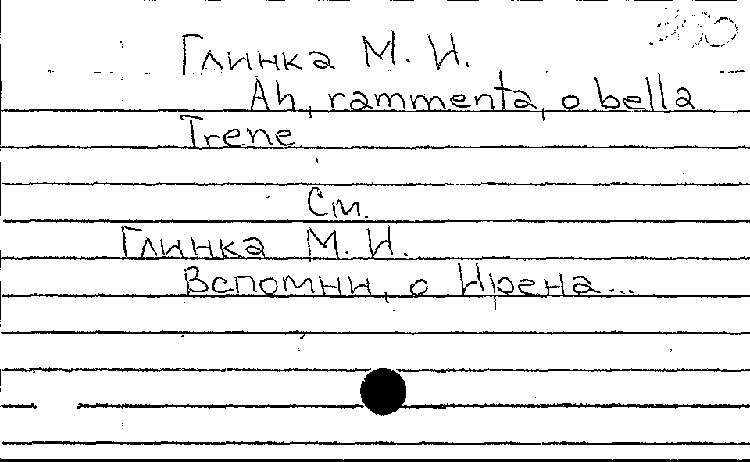 Глинка М. И.
Ah, rammenta, o bella
Irene
См.
Глинка М. И.
Вспомни, о Ирена...